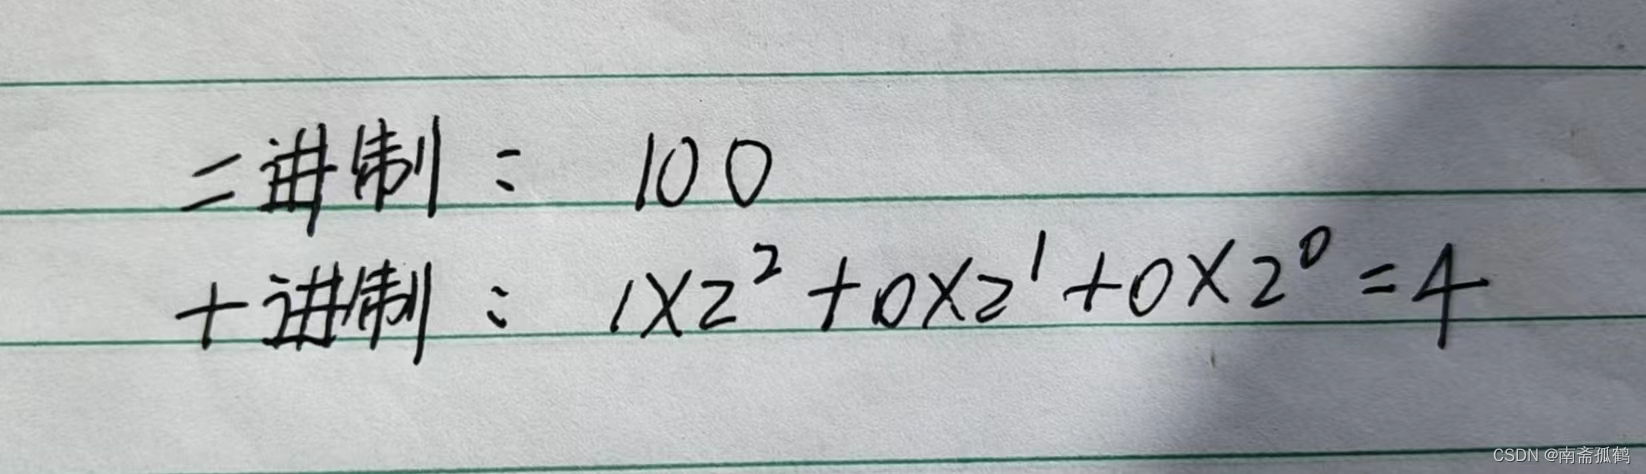 二进制： 100
十进制： 1×2² +0×2¹ +0×2⁰ =4
CSDN @南斋孤鹤